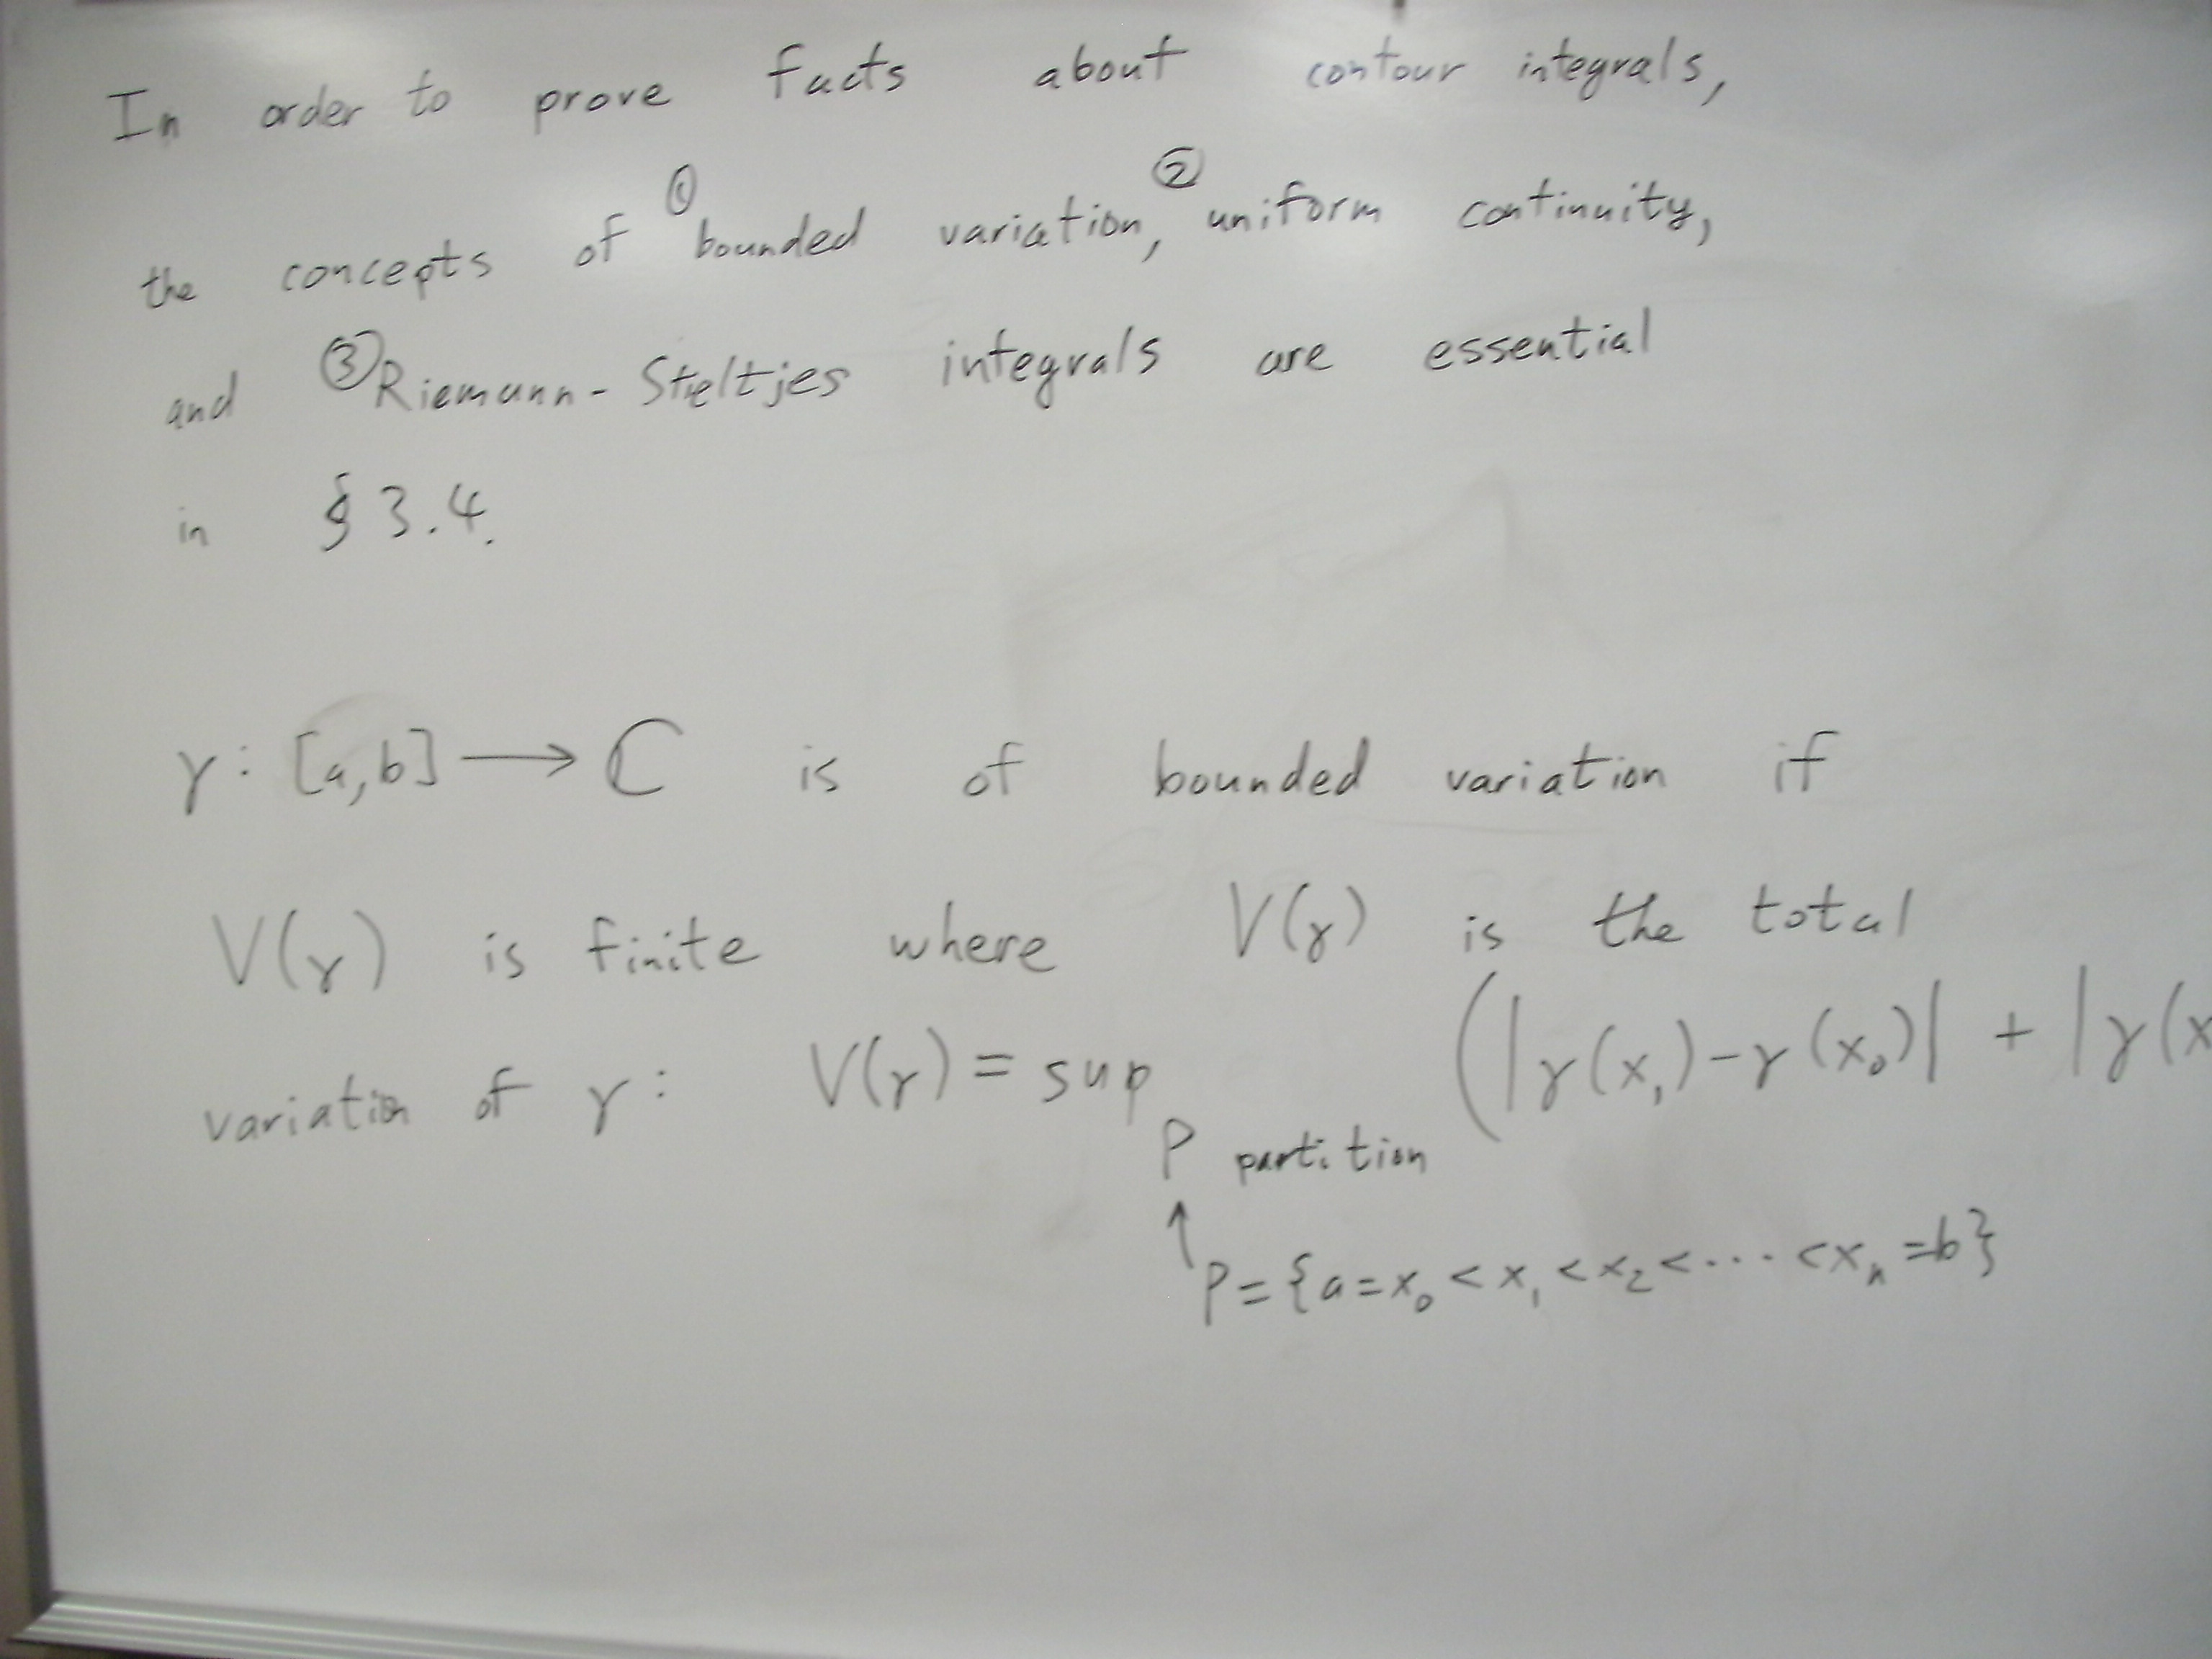 In order to prove facts about contour integrals,
the concepts of ① bounded variation, ② uniform continuity,
and ③ Riemann-Stieltjes integrals are essential
in § 3.4.
γ: [a,b] ⟶ C is of bounded variation if
V(γ) is finite where V(γ) is the total
variation of γ: V(γ) = sup (|γ(x₁)-γ(x₀)| + |γ(x
P partition
↑ P={a=x₀<x₁<x₂<...<xₙ=b}